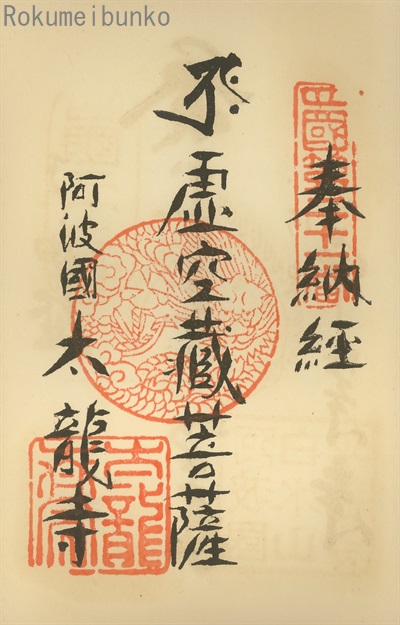 Rokumeibunko
奉納經
虚空藏菩薩
阿波國
太龍寺